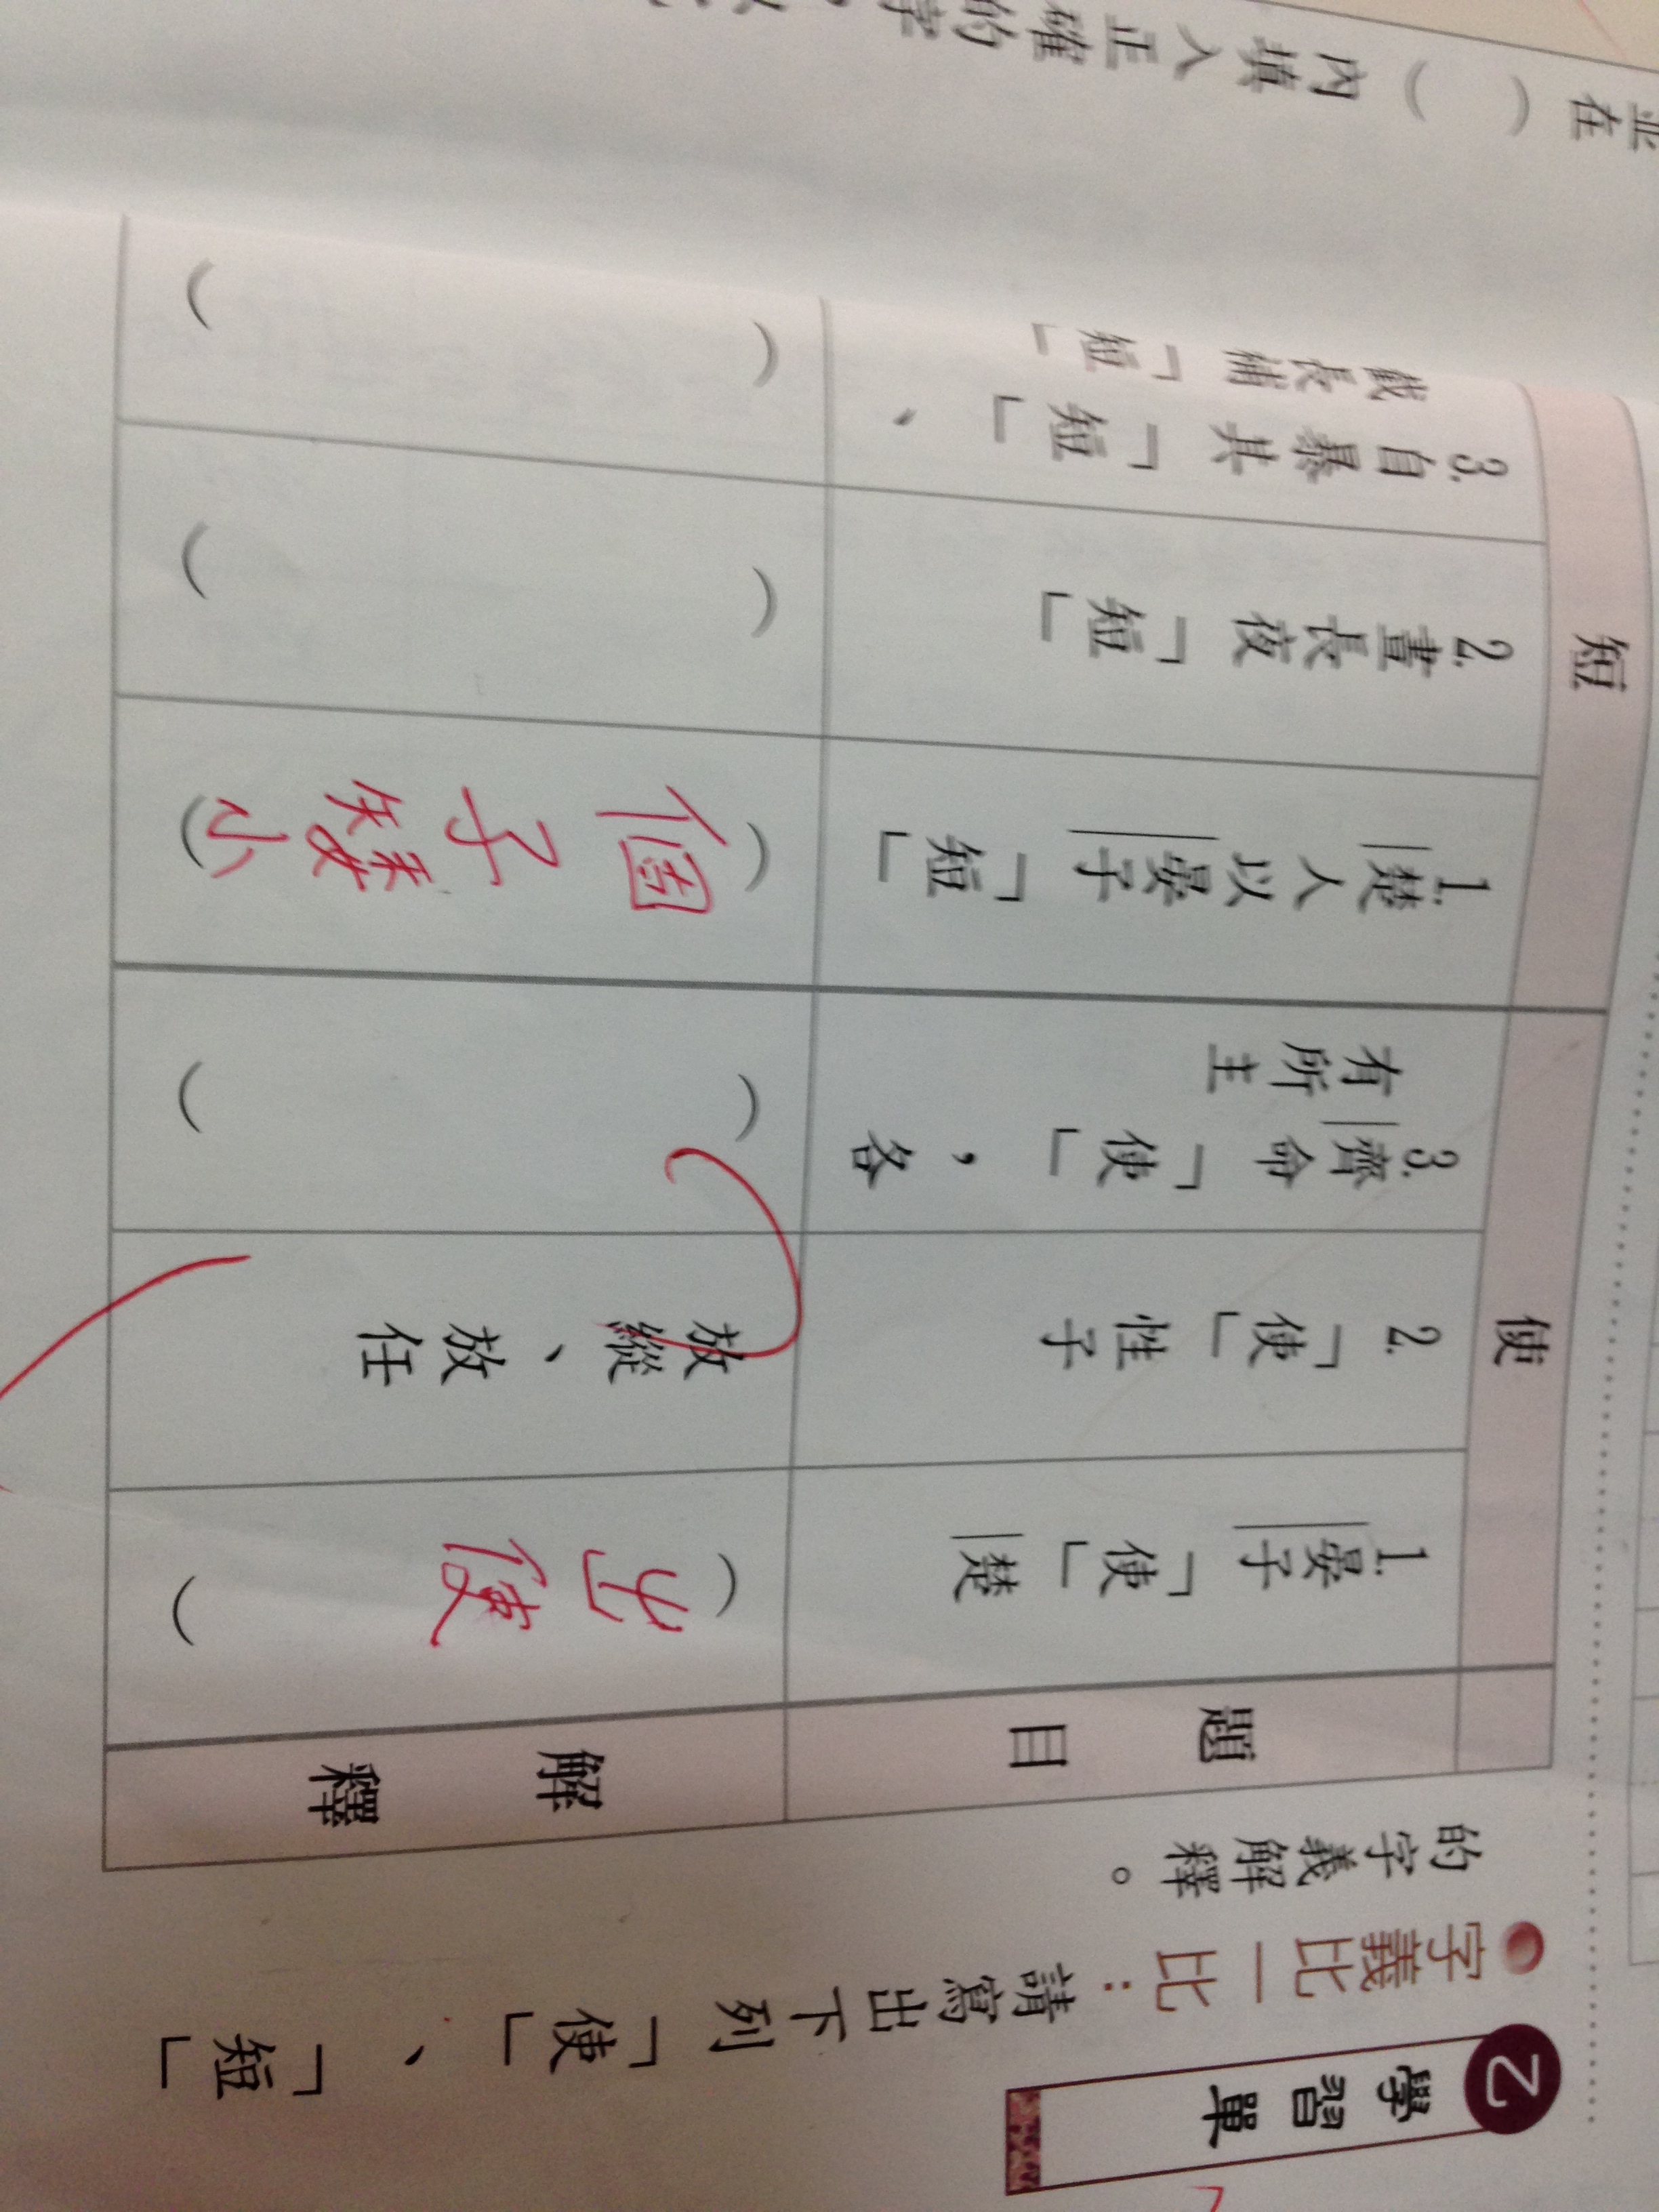 2 學習單
字義比一比：請寫出下列「使」、「短」
的字義解釋。
題目
解釋
使
1.晏子「使」楚
（出使）
2.「使」性子
放縱、放任
3.齊命「使」，各
有所主
（ ）
短
1.楚人以晏子「短」
（個子矮小）
2.晝長夜「短」
（ ）
3.自暴其「短」、
截長補「短」
（ ）
並在（ ）內填入正確的字